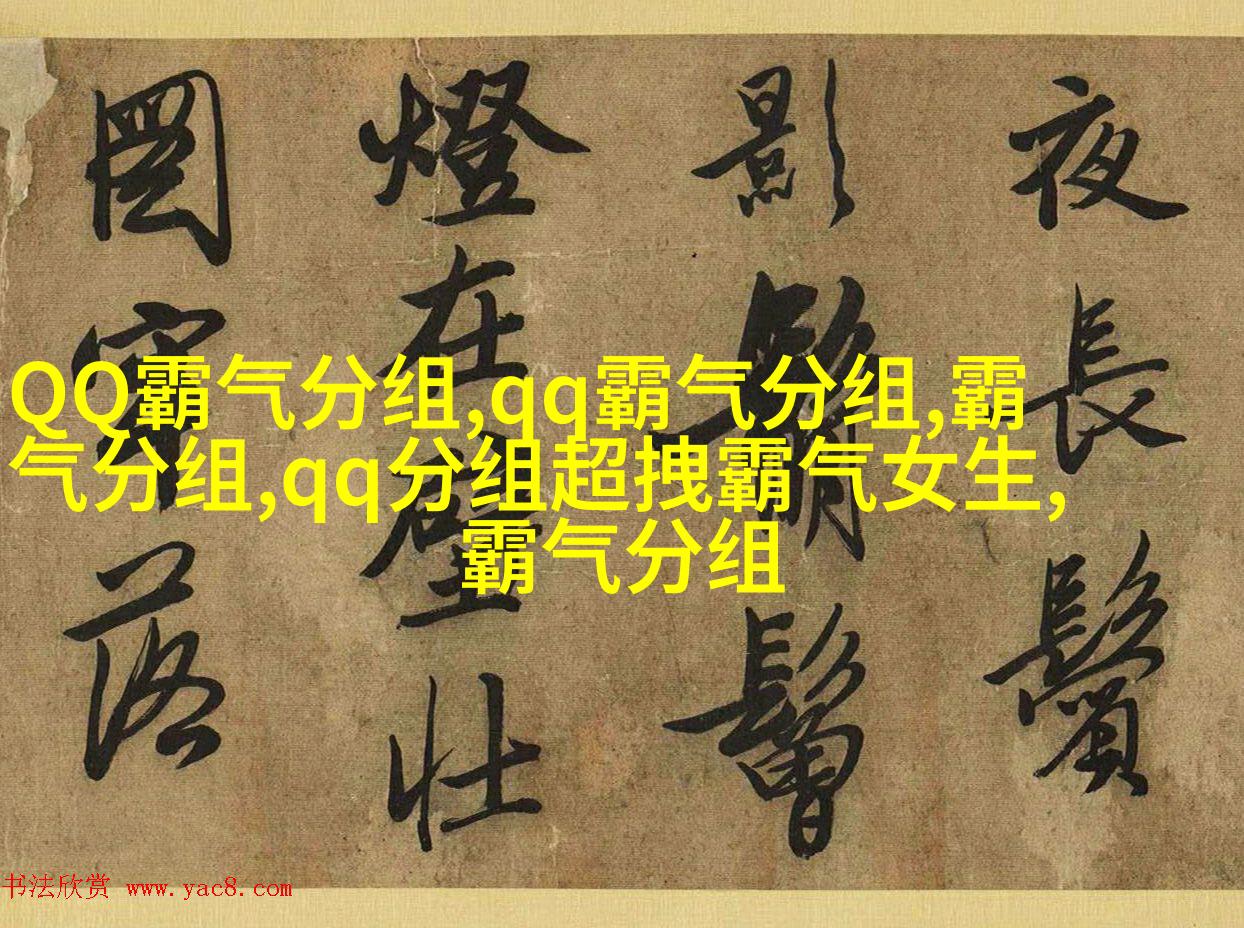 夜長鬢
影鬅鬙
燈在壁壮
圖牢落
QQ霸气分组,qq霸气分组,霸
气分组,qq分组超拽霸气女生,
霸气分组
书法欣赏 www.yac8.com